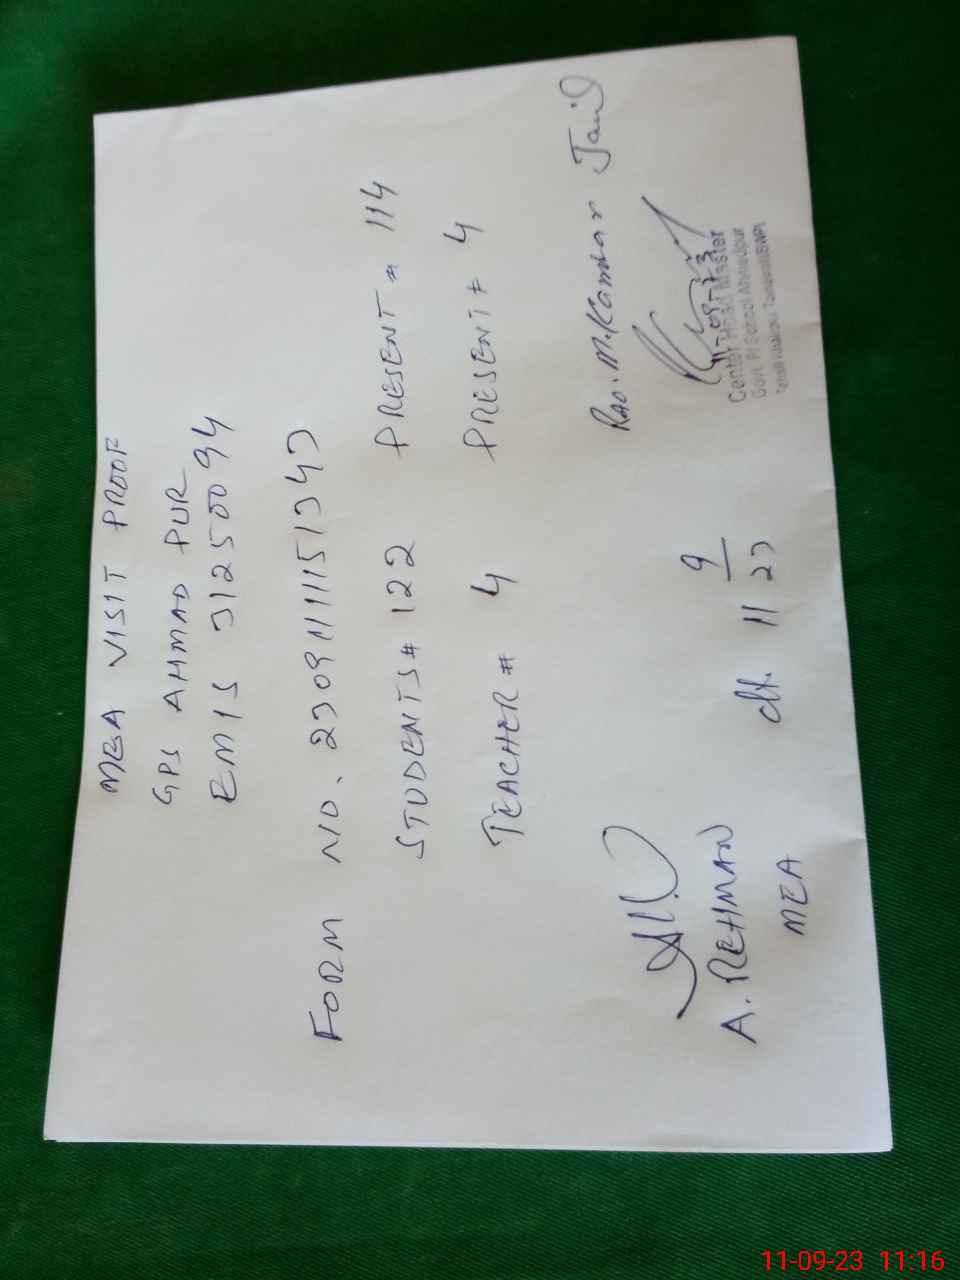 MEA VISIT PROOF
GPS AHMAD PUR
EMIS 31250094
FORM NO. 23091111151343
STUDENTS# 122 PRESENT# 114
TEACHER# 4 PRESENT# 4
Rao. M. Kamran
A. REHMAN
MEA
dt. 11 9/23
11-09-23
Center Head Master
Govt. P/School Ahmadpur
11-09-23 11:16